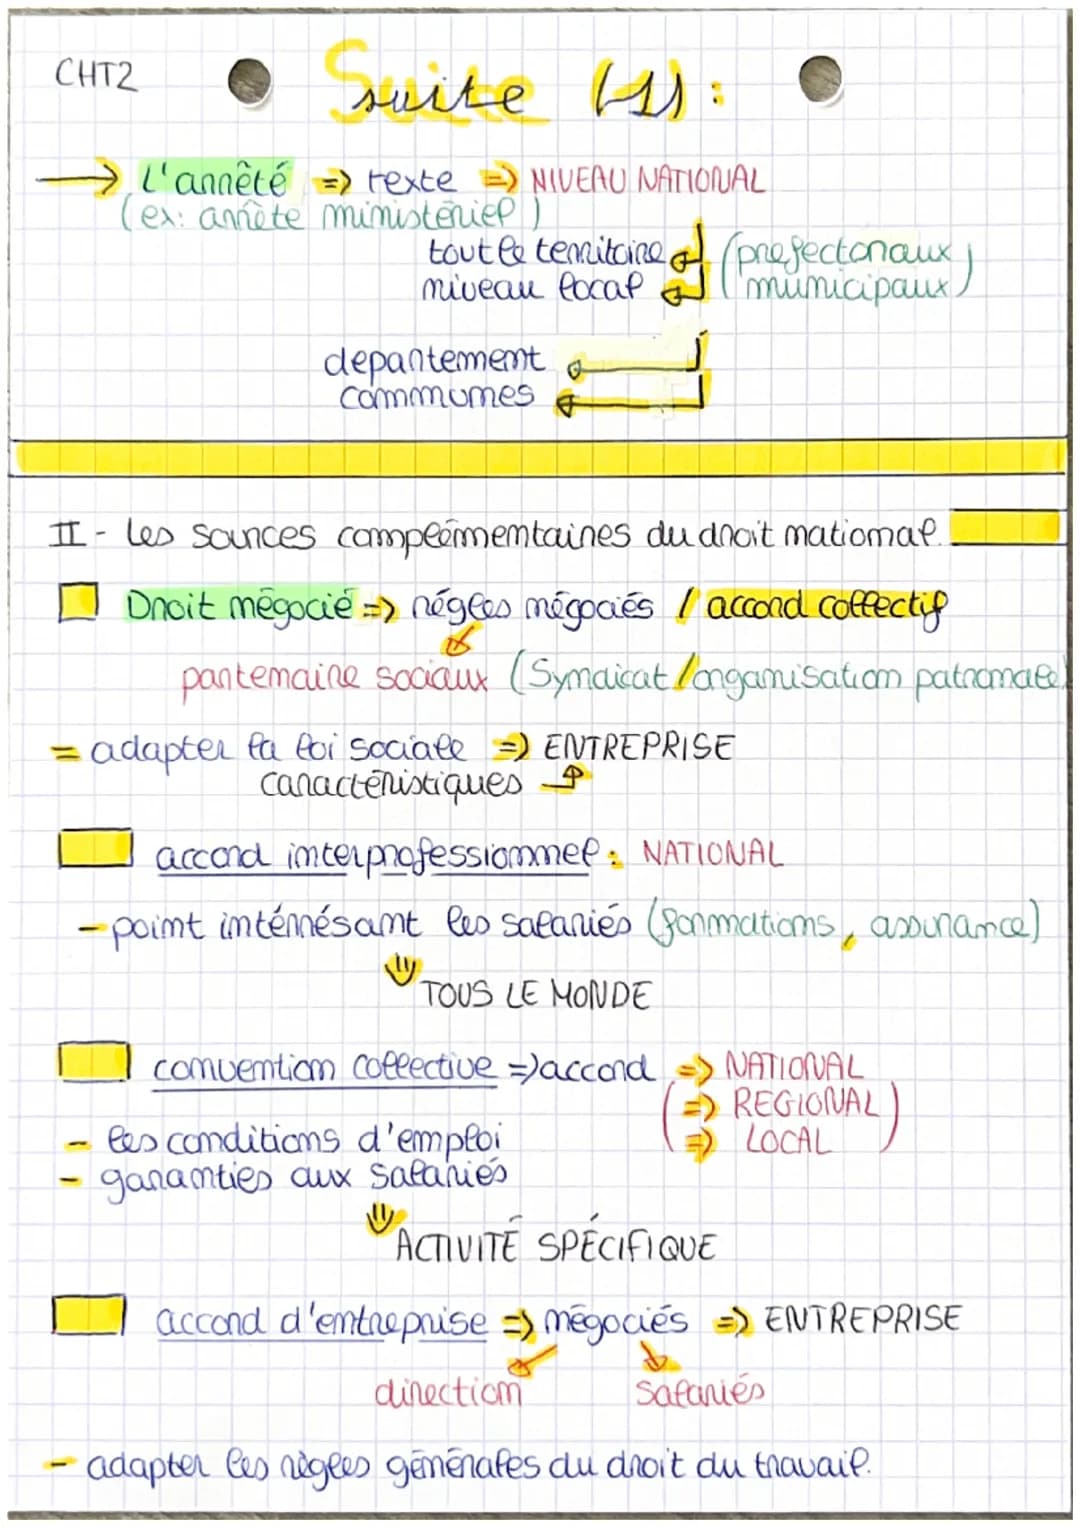 CHT2
Suite (1) :
→ L'arrêté => texte => NIVEAU NATIONAL
(ex: arrête ministériel)
tout le territoire (prefectoraux
niveau local municipaux)
departement
communes
II - Les sources complérmentaires du droit national.
Droit négocié => régles négociés / accord collectif
partenaire sociaux (Syndicat/organisation patronale)
= adapter la loi sociale => ENTREPRISE
caractéristiques
accord interprofessionnel : NATIONAL
- point intérrésant les salariés (formations, assurance)
TOUS LE MONDE
convention collective => accord => NATIONAL
(=> REGIONAL)
=> LOCAL
- les conditions d'emploi
- garanties aux salariés
ACTIVITÉ SPÉCIFIQUE
accord d'entreprise => négociés => ENTREPRISE
direction salariés
- adapter les règles générales du droit du travail.